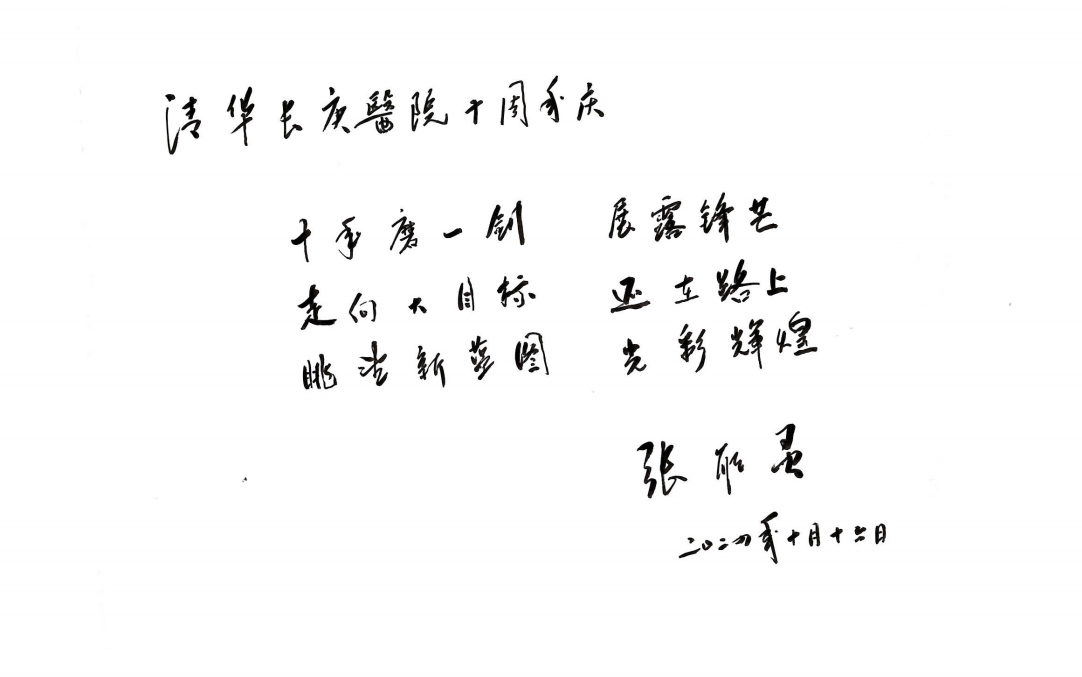 清华长庚醫院十周年庆
十年磨一剑 展露锋芒
走向大目标 还在路上
眺望新蓝图 光彩辉煌
張
二〇二四年十月十六日